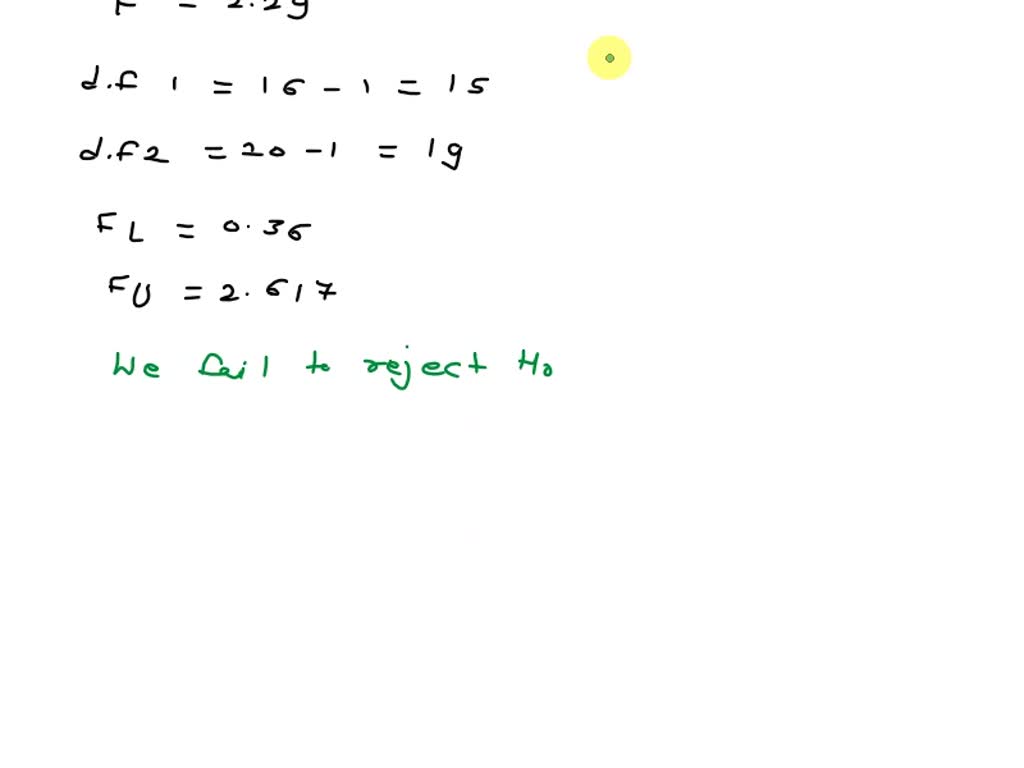 F = 2.29
d.f 1 = 16 - 1 = 15
d.f 2 = 20 - 1 = 19
FL = 0.36
FU = 2.617
We fail to reject H0